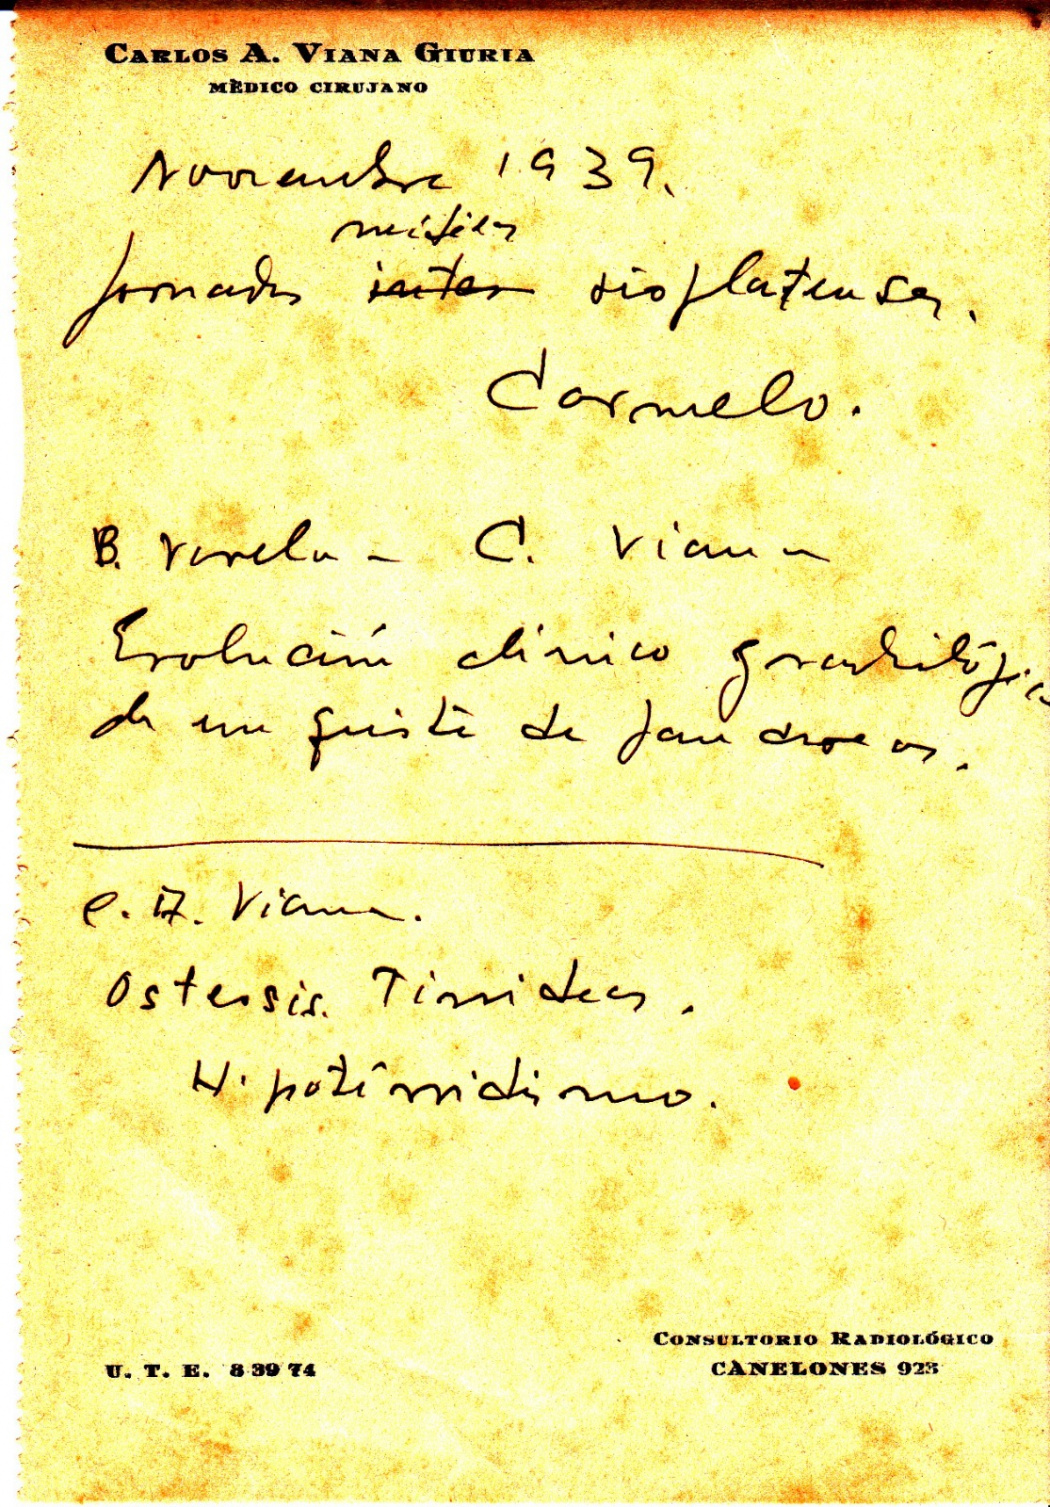 CARLOS A. VIANA GIURIA
MÈDICO CIRUJANO
Noviembre 1939.
médicas
Jornadas inter rioplatenses.
Carmelo.
B. Varela - C. Viana
Evolución clínico y radiológica
de un quiste de páncreas.
C. A. Viana.
Osteosis Tiroideas.
Hipotiroidismo.
CONSULTORIO RADIOLÓGICO
U. T. E. 8 39 74
CANELONES 923